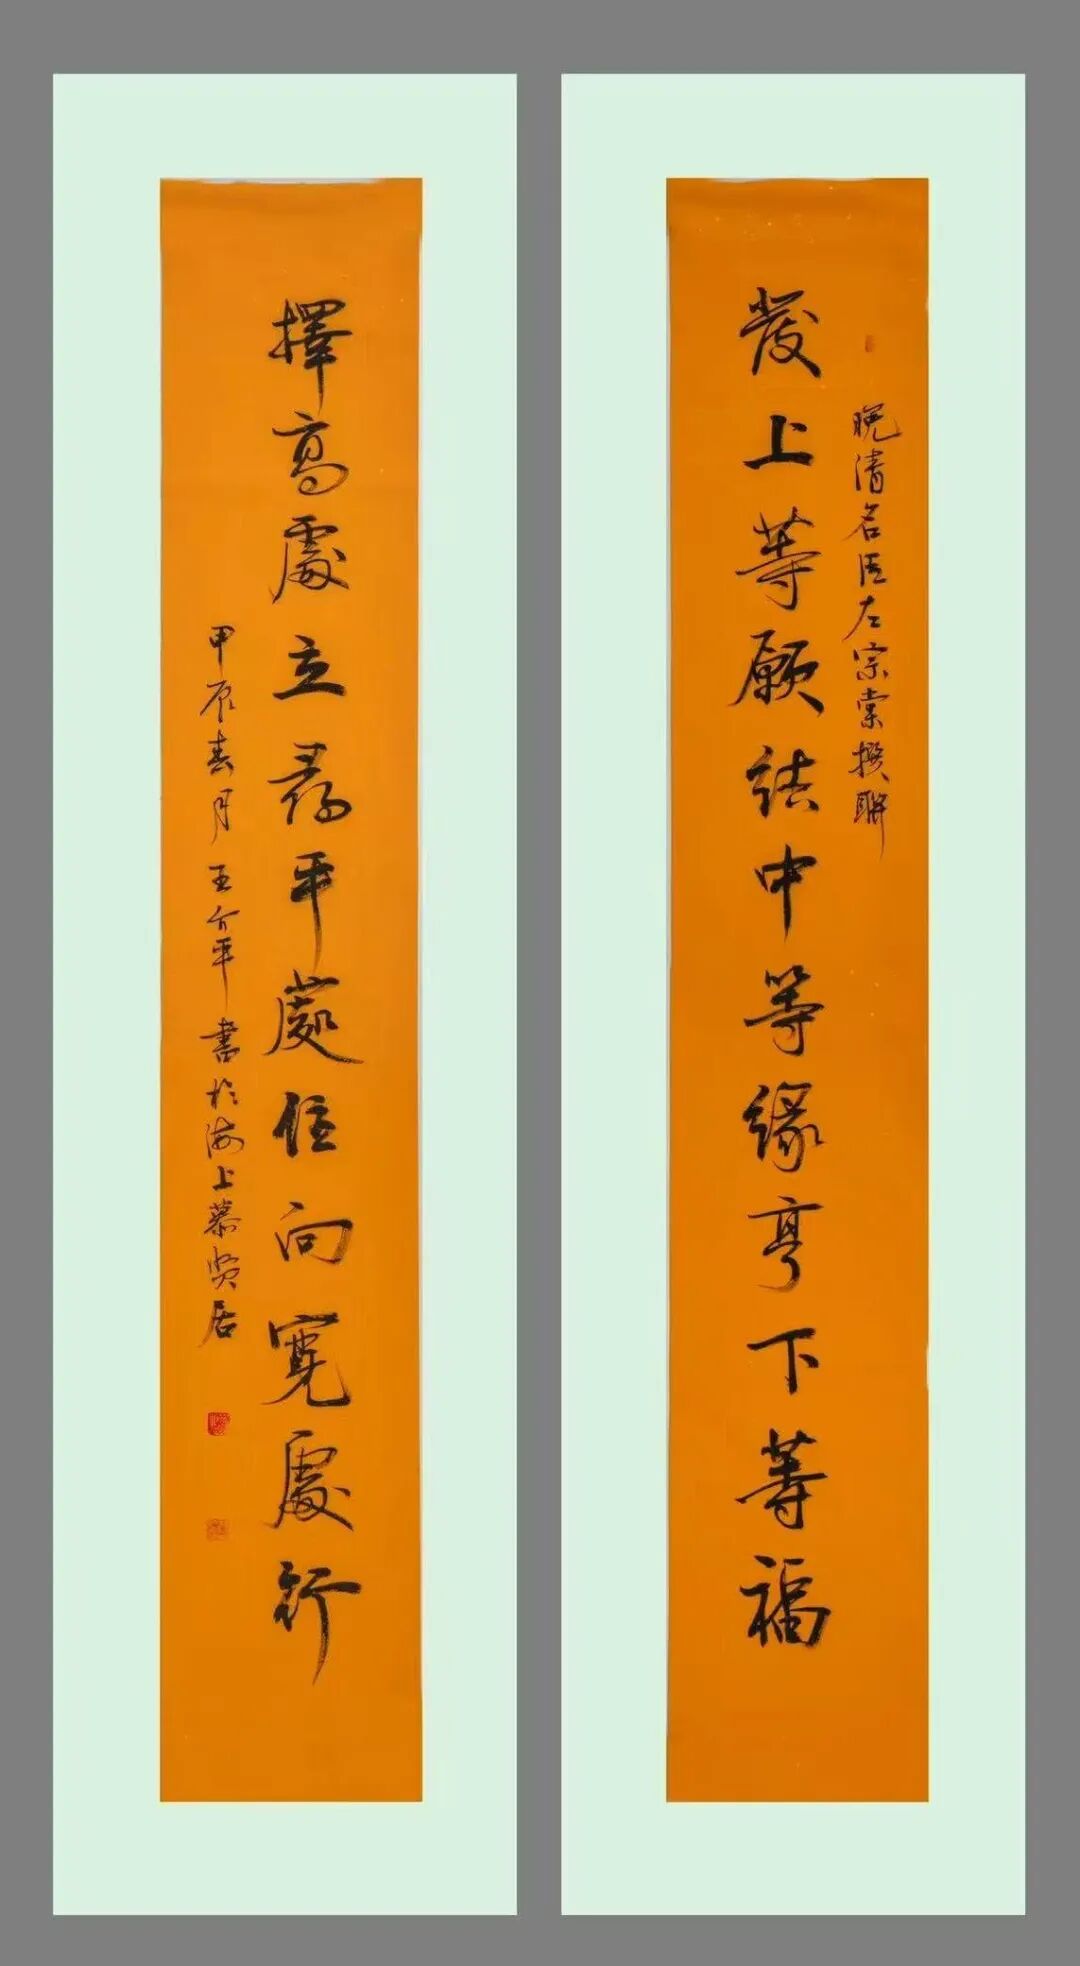 發上等願結中等緣享下等福
晚清名臣左宗棠撰聯
擇高處立尋平處住向寬處行
甲辰春月王介平書於海上慕賢居